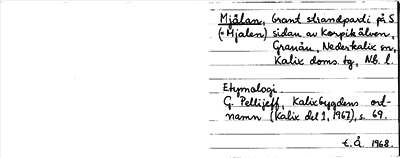 Mjålan, brant strandparti på S
(=Mjalen) sidan av Korpikälven,
Granån, Nederkalix sn,
Kalix doms. tg, Nb. l.
Etymologi
G. Pellijeff, Kalixbygdens ort-
namn (Kalix del 1, 1967), s. 69.
E. Å. 1968.